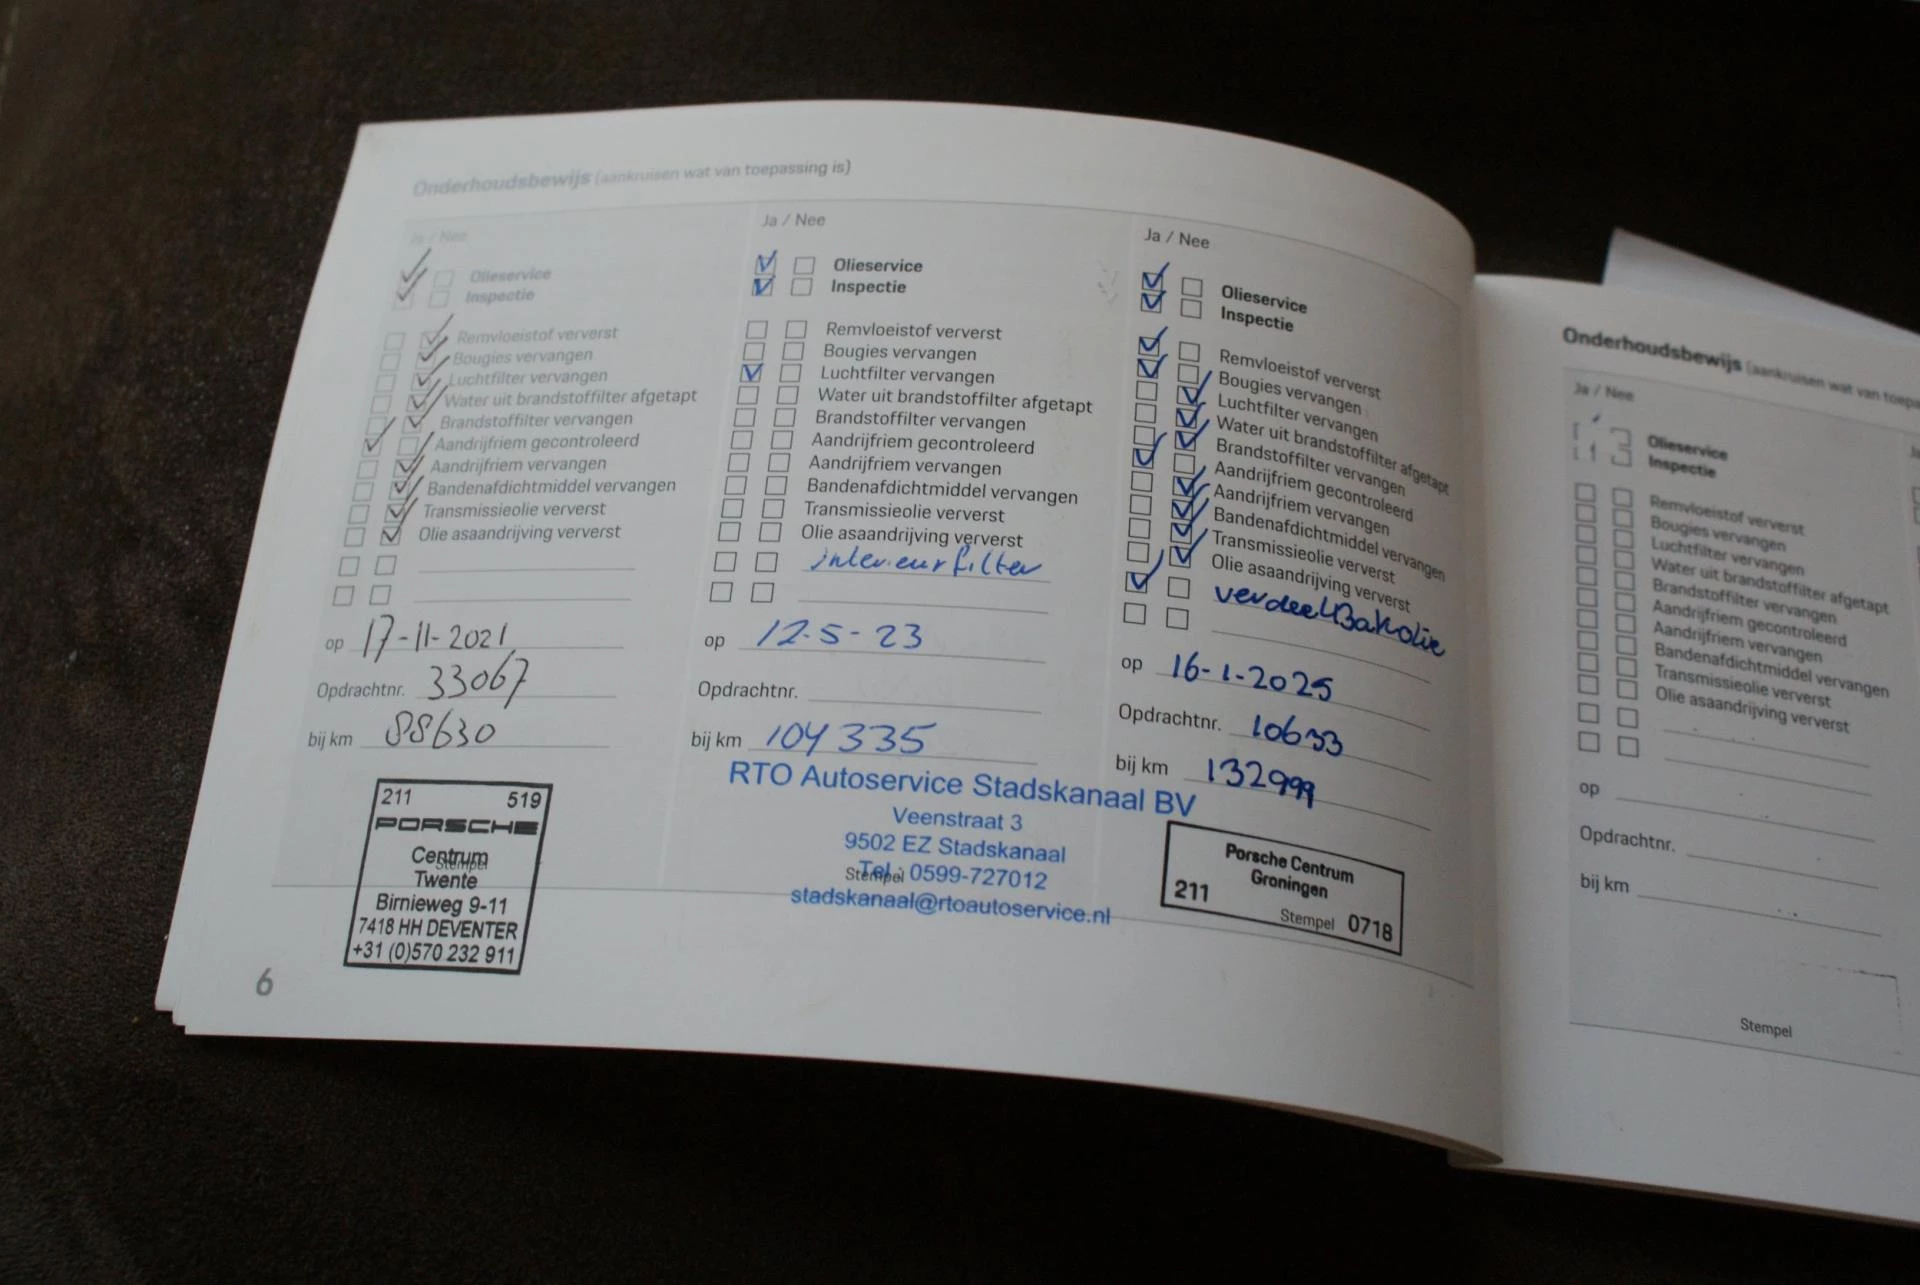 Onderhoudsbewijs (aankruisen wat van toepassing is)
Ja / Nee
Olieservice
Inspectie
Remvloeistof ververst
Bougies vervangen
Luchtfilter vervangen
Water uit brandstoffilter afgetapt
Brandstoffilter vervangen
Aandrijfriem gecontroleerd
Aandrijfriem vervangen
Bandenafdichtmiddel vervangen
Transmissieolie ververst
Olie asaandrijving ververst
op 17-11-2021
Opdrachtnr. 33067
bij km 88630
211 519
PORSCHE
Centrum
Stempel
Twente
Birnieweg 9-11
7418 HH DEVENTER
+31 (0)570 232 911
6
Ja / Nee
Olieservice
Inspectie
Remvloeistof ververst
Bougies vervangen
Luchtfilter vervangen
Water uit brandstoffilter afgetapt
Brandstoffilter vervangen
Aandrijfriem gecontroleerd
Aandrijfriem vervangen
Bandenafdichtmiddel vervangen
Transmissieolie ververst
Olie asaandrijving ververst
interieurfilter
op 12-5-23
Opdrachtnr.
bij km 104335
RTO Autoservice Stadskanaal BV
Veenstraat 3
9502 EZ Stadskanaal
Stempel
Tel.: 0599-727012
stadskanaal@rtoautoservice.nl
Ja / Nee
Olieservice
Inspectie
Remvloeistof ververst
Bougies vervangen
Luchtfilter vervangen
Water uit brandstoffilter afgetapt
Brandstoffilter vervangen
Aandrijfriem gecontroleerd
Aandrijfriem vervangen
Bandenafdichtmiddel vervangen
Transmissieolie ververst
Olie asaandrijving ververst
verdeelBakolie
op 16-1-2025
Opdrachtnr. 10633
bij km 132999
Porsche Centrum
Groningen
211 Stempel 0718
Onderhoudsbewijs (aankruisen wat van
Ja / Nee
Olieservice
Inspectie
Remvloeistof ververst
Bougies vervangen
Luchtfilter vervangen
Water uit brandstoffilter afgetapt
Brandstoffilter vervangen
Aandrijfriem gecontroleerd
Aandrijfriem vervangen
Bandenafdichtmiddel vervangen
Transmissieolie ververst
Olie asaandrijving ververst
op
Opdrachtnr.
bij km
Stempel